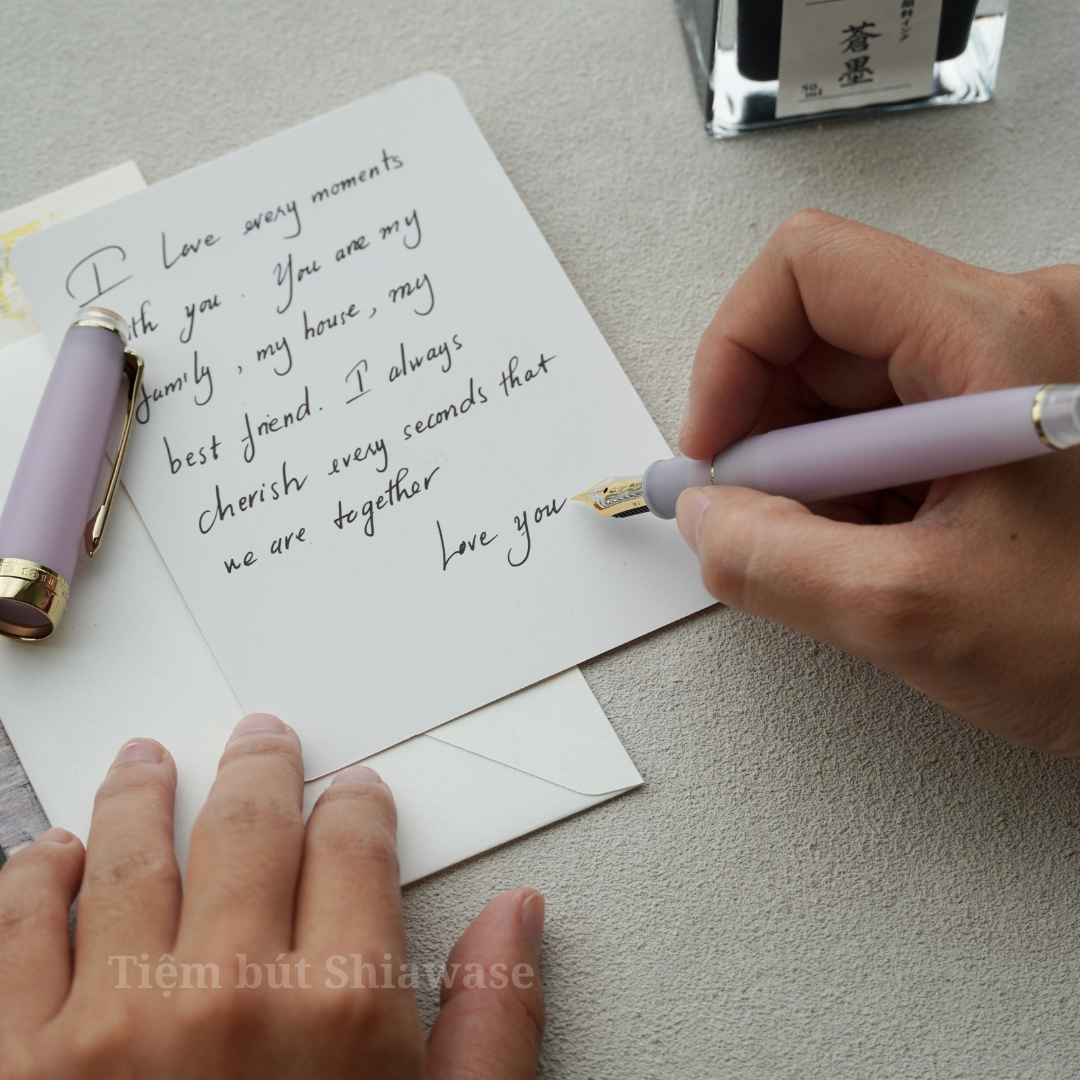 顔料インク
蒼墨
50 ml
I Love every moments
with you. You are my
family, my house, my
best friend. I always
cherish every seconds that
we are together
Love you
Tiệm bút Shiawase